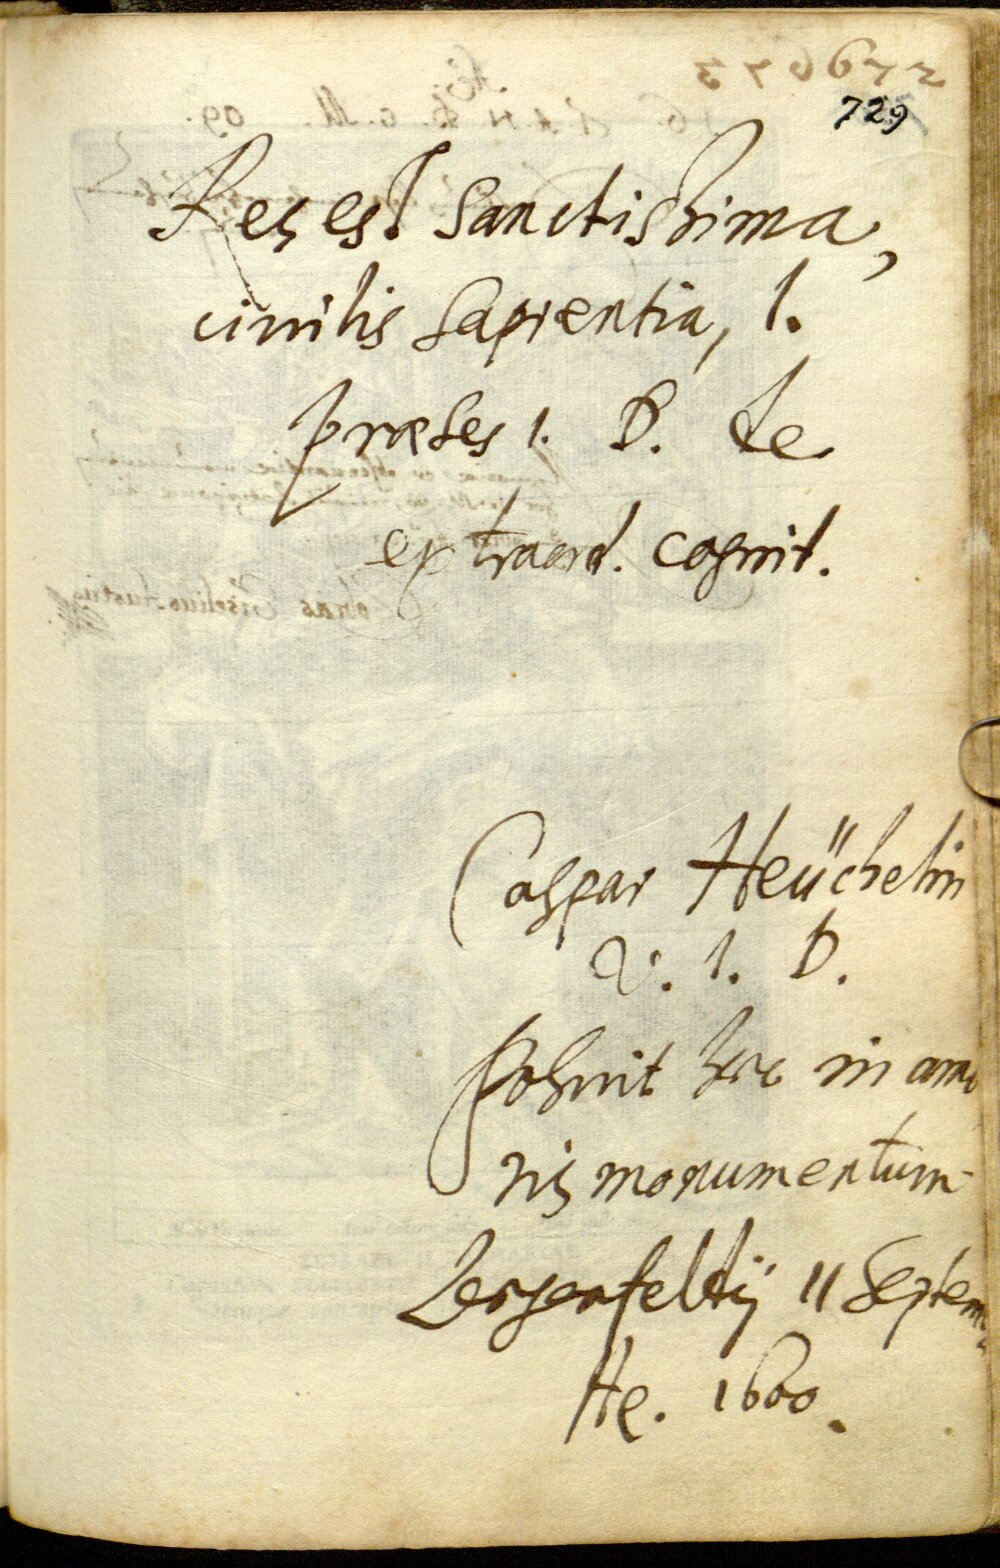 729
Res est sanctissima,
civilis sapientia, l.
præses 1. D. de
extraord. cognit.
Caspar Heüchelin
V. I. D.
posuit hæc in amo
ris monumentum
11 Septem
1600.